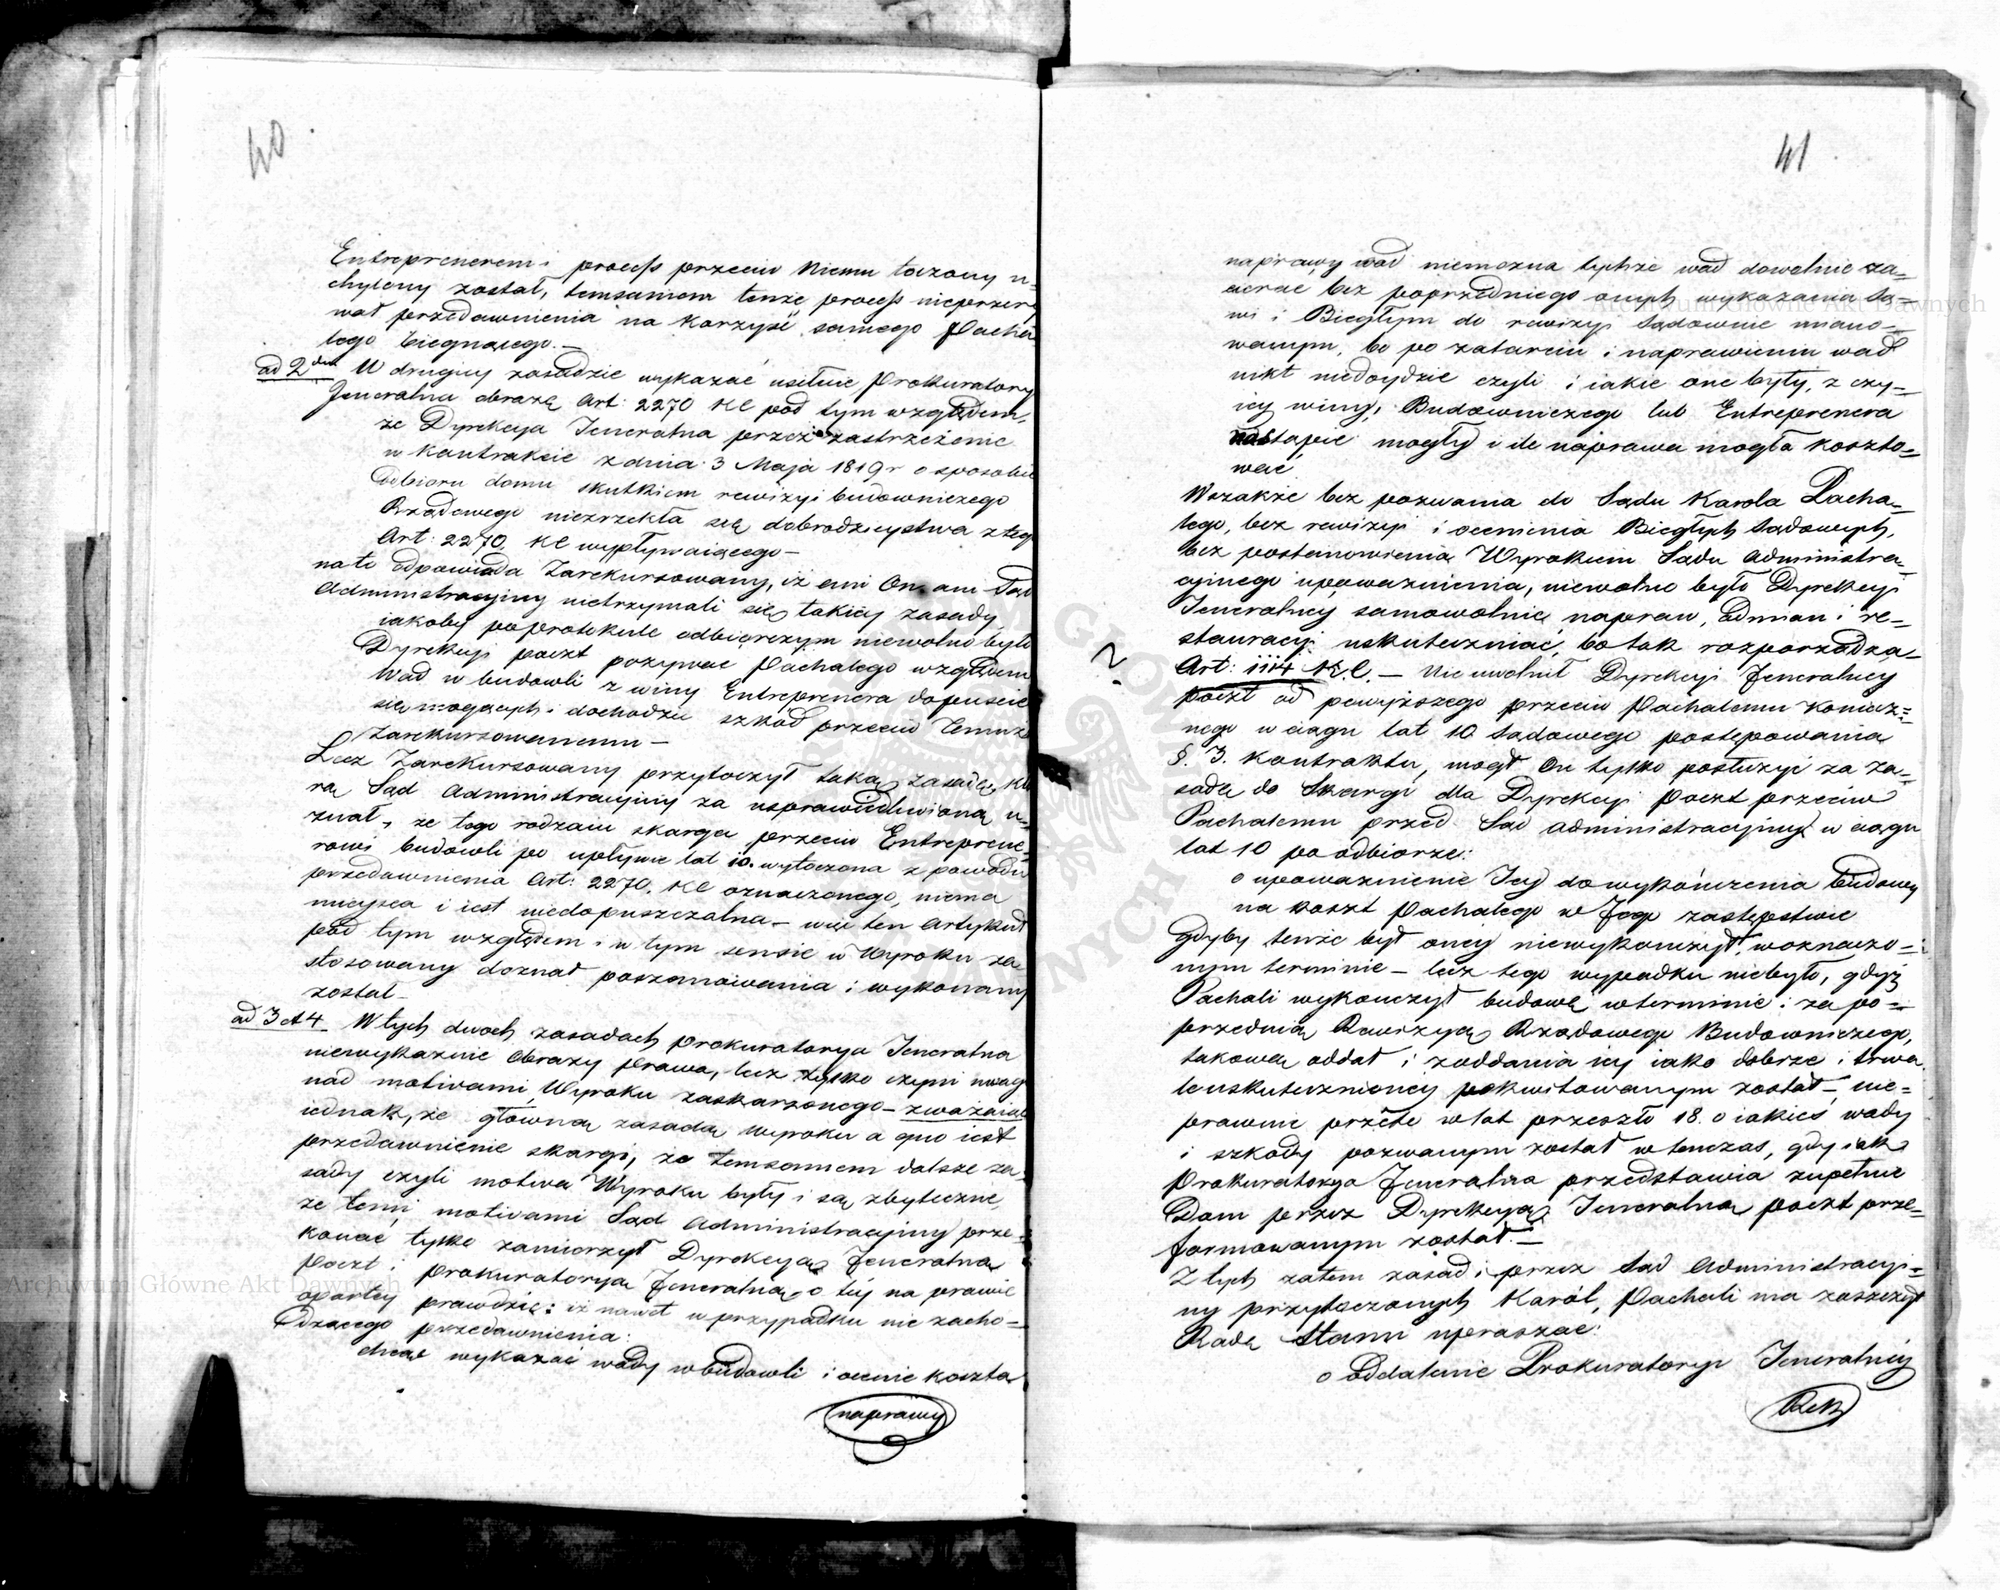 40
Entreprenerem i process przeciw Niemu toczony u-
chylony został, temsamem tenże process nieprzery
wał przedawnienia na korzyść samego Pacha
lego biegnącego.—
ad 2dum W drugiey zasadzie wykazać usiłuie Prokuratorya
Jeneralna obrazę Art: 2270 KC pod tym względem,
że Dyrekcya Jeneralna przez zastrzeżenie
w Kontrakcie z dnia 3 Maja 1819 r o sposobie
Odbioru domu skutkiem rewizyi budowniczego
Rządowego niezrzekła się dobrodzieystwa z tego
Art: 2270. KC wypływaiącego —
na to odpowiada Zarekursowany, iż ani On ani Sąd
Administracyiny nietrzymali się takiey zasady
iakoby po protokule odbiorczym niewolno było
Dyrekcyi poczt pozywać Pachalego względem
Wad w budowli z winy Entreprenera dopuścić
się mogących i dochodzić szkód przeciw Temuż
Zarekursowanemu —
Lecz Zarekursowany przytoczył taką zasadę, któ
rą Sąd Administracyiny za usprawiedliwioną u-
znał, że tego rodzaiu skarga przeciw Entreprene-
rowi budowli po upływie lat 10. wytoczona z powodu
przedawnienia Art: 2270. KC oznaczonego, niema
mieysca i iest niedopuszczalna — więc ten Artykuł
pod tym względem i w tym sensie w Wyroku za
stosowany doznał poszanowania i wykonany
został —
ad 3 et 4 W tych dwoch zasadach prokuratorya Jeneralna
niewykaznie Obrazy prawa, lecz tylko czyni uwagi
nad motivami Wyroku zaskarżonego — zważaiąc
iednak, że główną zasadą wyroku a quo iest
przedawnienie skargi, że temsamem dalsze za-
sady czyli motiva Wyroku były i są zbyteczne,
że temi motivami Sąd Administracyiny prze-
konać tylko zamierzył Dyrekcyą Jeneralną
Poczt i prokuratoryą Jeneralną o téy na prawie
opartey prawdzie: iż nawet w przypadku nie zacho-
dzącego przedawnienia:
chcąc wykazać wady w budowli i ocenić koszta
naprawy
41
naprawy wad niemożna tychże wad dowolnie za-
cierać bez poprzedniego onych wykazania Są-
wi i Biegłym do rewizyi Sądownie miano-
wanym, bo po zatarciu i naprawieniu wad
nikt niedoydzie czyli i iakie one były, z czy-
iey winy, Budowniczego lub Entreprenera
nastąpić mogły i ile naprawa mogła koszto-
wać
Wszakże bez pozwania do Sądu Karola Pacha-
lego, bez rewizyi i ocenienia Biegłych Sądowych,
bez postanowienia Wyrokiem Sądu Administra
cyinego upoważnienia, niewolno było Dyrekcyi
Jeneralney samowolnie napraw, Odmian i re-
stauracyi uskuteczniać, bo tak rozporządza
?
Art: 1114 K.C. — Nie uwolnił Dyrekcyi Jeneralney
poczt od powyższego przeciw Pachalemu koniecz-
nego w ciągu lat 10 Sądowego postępowania
§. 3. Kontraktu, mogł On tylko posłużyć za za-
sadę do Skargi dla Dyrekcyi Poczt przeciw
Pachalemu przed Sąd administracyiny w ciągu
lat 10 po odbiorze:
o upoważnienie Jey do wykończenia budowy
na koszt Pachalego w Jego zastępstwie
gdyby tenże był oney niewykończył w oznaczo-
nym terminie — lecz tego wypadku niebyło, gdyż
Pachali wykończył budowę w terminie i za po-
przednią Rewizyą Rządowego Budowniczego,
takową oddał i z oddania iey iako dobrze i trwa
le uskutecznioney pokwitowanym został —, nie-
prawnie przeto w lat przeszło 18. o iakieś wady
i szkody pozwanym został w tenczas, gdy iak
Prokuratorya Jeneralna przedstawia zupełnie
Dom przez Dyrekcyą Jeneralną poczt prze-
formowanym został. —
Z tych zatem zasad i przez Sąd Administracyi-
ny przytoczonych Karól Pachali ma zaszczyt
Radę Stanu upraszać:
o Oddalenie Prokuratoryi Jeneralney